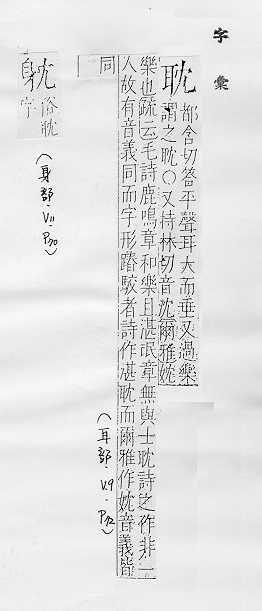 字彙
耽 都含切答平聲耳大而垂又過樂
謂之耽○又持林切音沈爾雅妉
樂也疏云毛詩鹿鳴章和樂且湛氓章無與士耽詩之作非一
人故有音義同而字形踳駁者詩作湛耽而爾雅作妉音義皆
同
(耳部.V.9.P.12)
躭 俗耽
字
(身部.V.11.P.30)